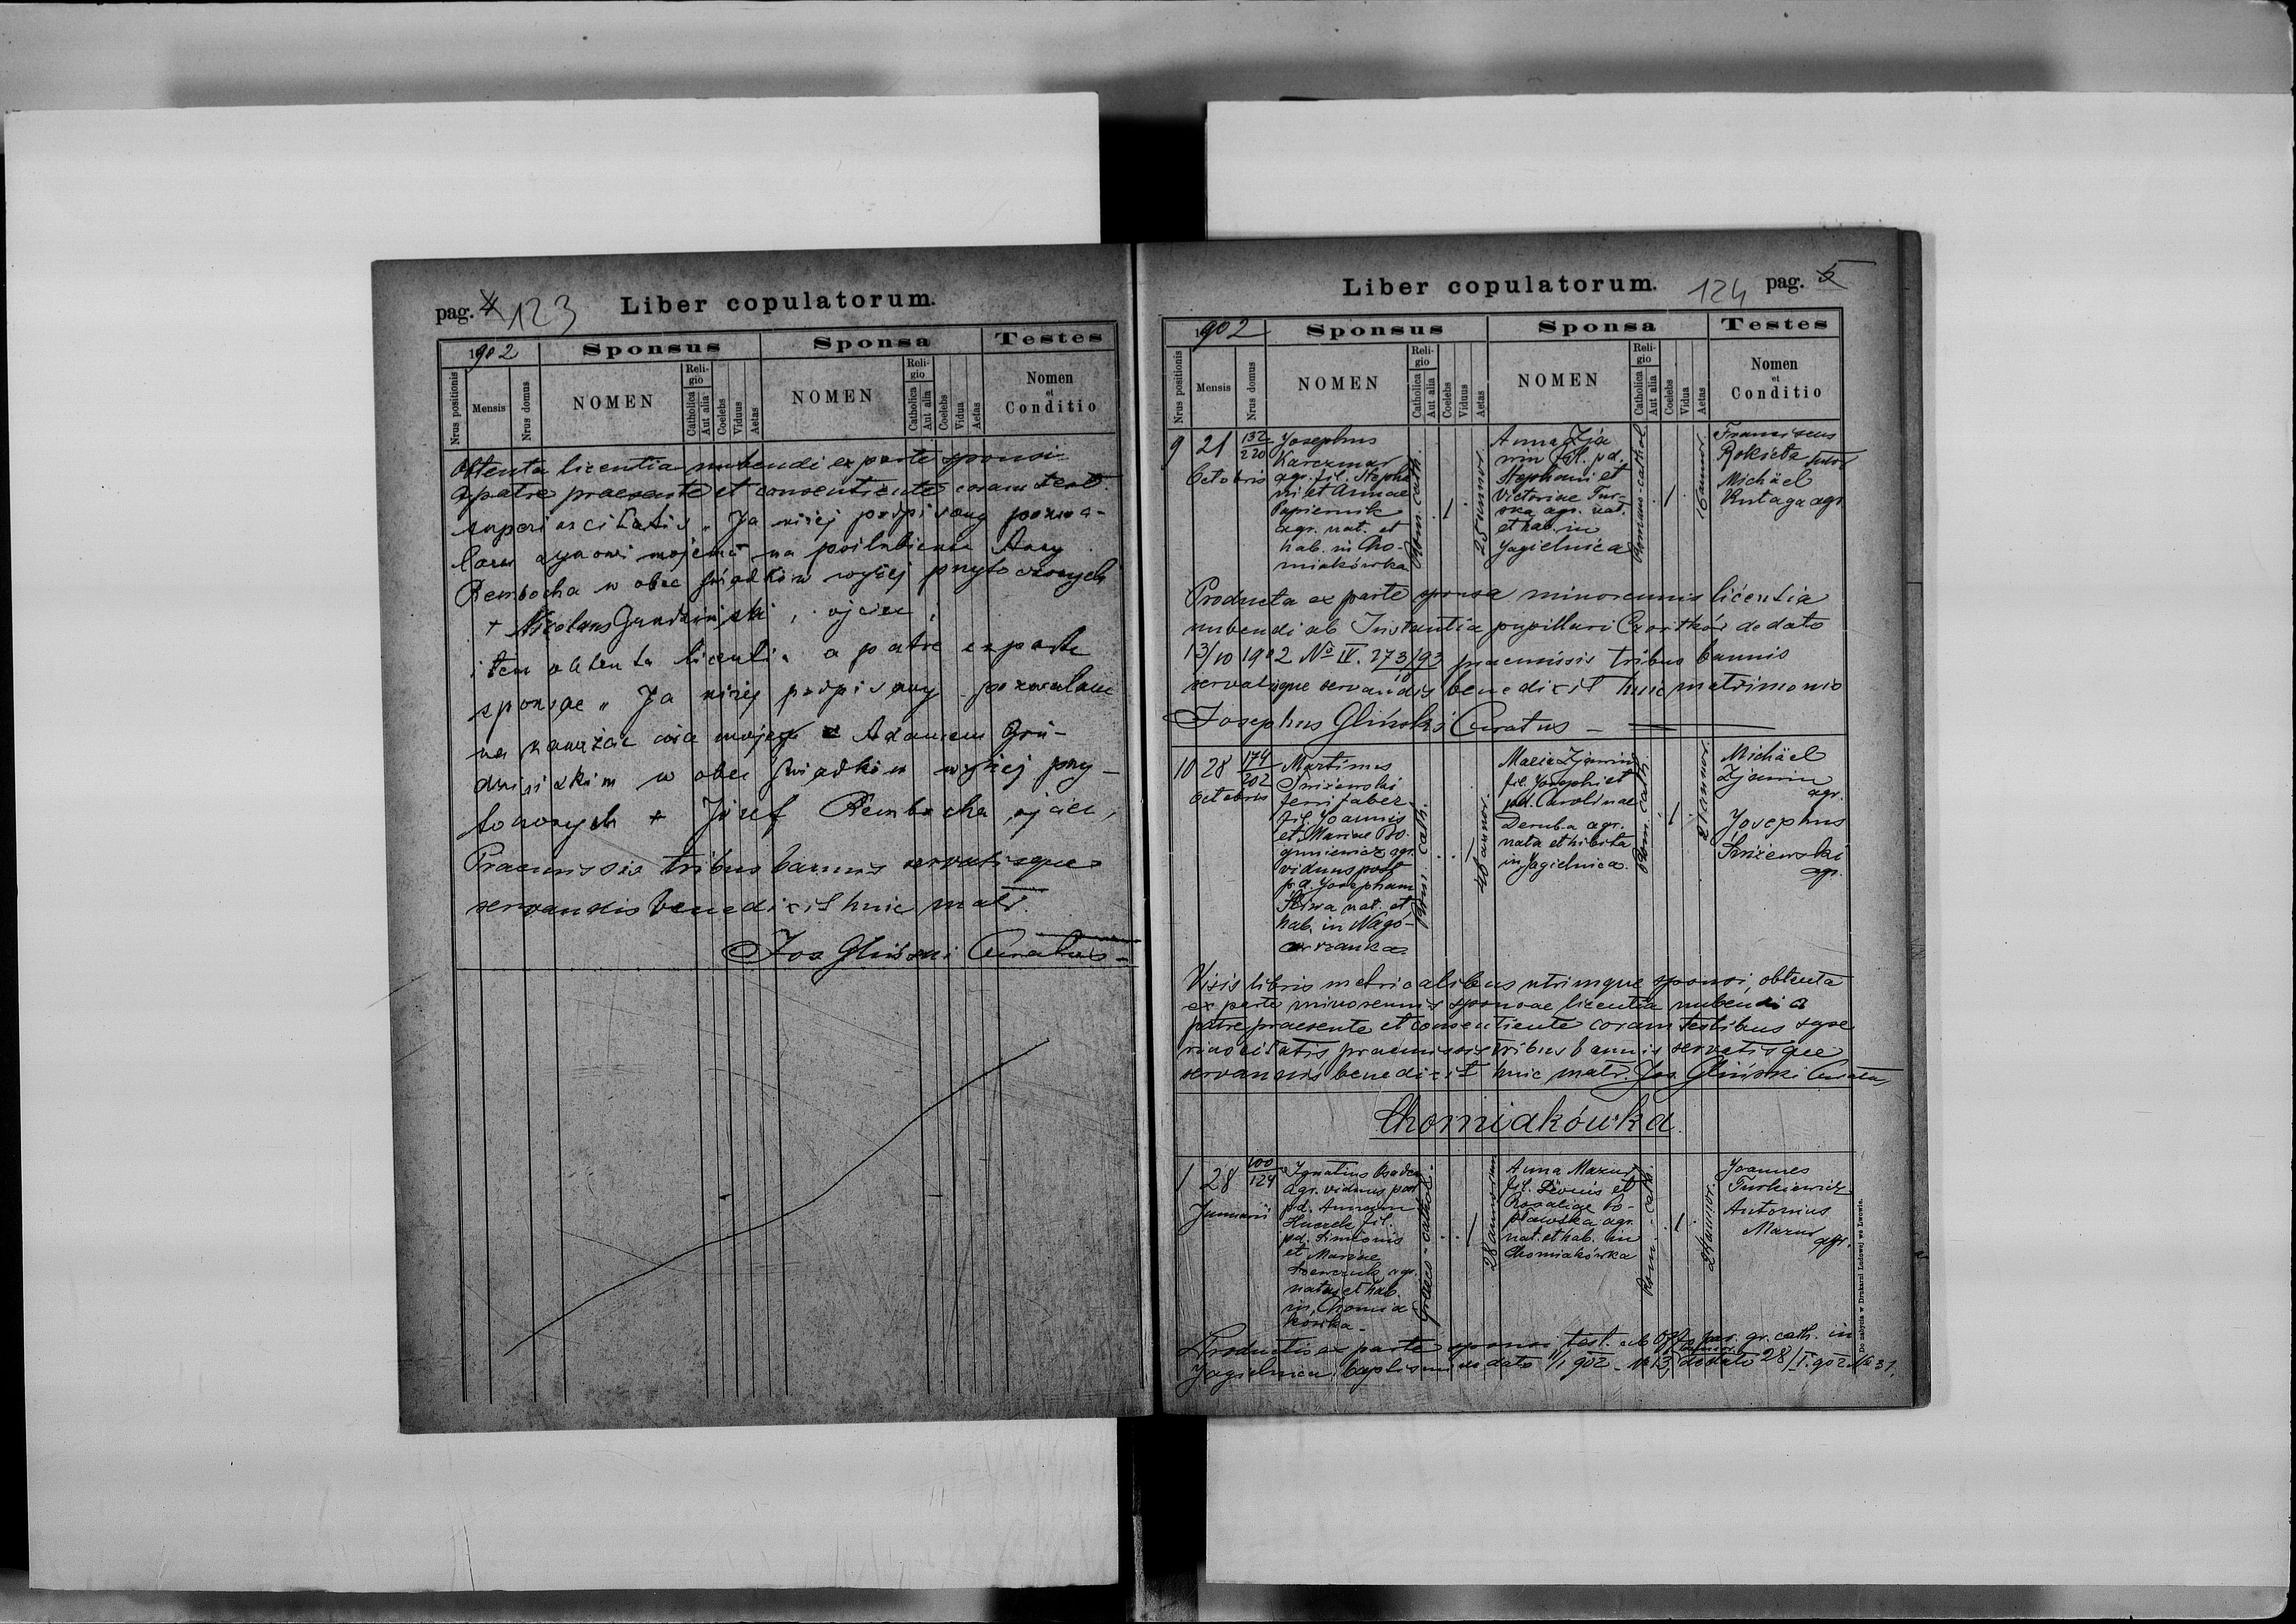 pag. 4 123 Liber copulatorum.
1902 Sponsus Sponsa Testes
Nrus positionis Mensis Nrus domus NOMEN Religio Catholica Aut alia Coelebs Viduus Aetas NOMEN Religio Catholica Aut alia Coelebs Vidua Aetas Nomen et Conditio
Obtenta licentia nubendi ex parte sponsi
a patre praesente et consentiente coram test.
superius citatis „ Ja niżej podpisany pozwa-
lam synowi mojemu na poślubienie Anny
Rembocha w obec świadków wyżej przytoczonych
+ Nicolaus , ojciec ,
item obtenta licentia a patre ex parte
sponsae „ Ja niżej podpisany pozwalam
na Adamem Gru-
w obec świadków wyżej przy-
toczonych + Józef Rembocha ojciec,
Praemissis tribus bannis servatisque
servandis benedixit huic matr.
Jos Gliński Curatus -
Liber copulatorum. 124 pag. 5
1902 Sponsus Sponsa Testes
Nrus positionis Mensis Nrus domus NOMEN Religio Catholica Aut alia Coelebs Viduus Aetas NOMEN Religio Catholica Aut alia Coelebs Vidua Aetas Nomen et Conditio
9 21 Octobris 132/220
Josephus
Karczmar
agr. fil. Stepha
ni et Annae
Papiernik
agr. nat. et
hab. in Cho-
miakówka
Rom. cath.
1
25 annor.
Anna Zja
win fil. pd.
Stephani et
Victoriae Tur-
ska agr. nat.
et hab. in
Jagielnica
Roman-cathol.
1
16 annor.
Franciscus
Rokieta
Michäel
Rutaga agr.
Producta ex parte sponsa minorennis licentia
nubendi ab Instantia pupillari Czortków de dato
13/10 1902 No IV. 273/93 praemissis tribus bannis
servatisque servandis benedixit huic matrimonio
Josephus Gliński Curatus -
10 28 Octobris 174/202
Martinus
Śnieżewski
ferri faber
fil. Joannis
et Mariae Bo-
gumiewicz agr.
viduus post
p.d. Josepham
Śliwa nat. et
hab. in Nagó-
rzanka
Rom. cath.
1
48 annor.
Maria Zjawin
fil. Josephi et
pd. Carolinae
Deruba agr.
nata et hibita
in Jagielnica.
Rom. cath.
1
21 annor.
Michäel
Zjawin
agr.
Josephus
Śnieżewski
agr.
Visis libris metricalibus utrinque sponsi, obtenta
ex parte minorennis sponsae licentia nubendi a
patre praesente et consentiente coram testibus supe
rius citatis, praemissis tribus bannis servatisque
servandis benedixit huic matr. Jos. Gliński Curatus
Chomiakówka.
1 28 Januarii 100/124
Ignatius
agr. viduus post
p.d. Annam
Huczek fil.
pd. Simeonis
et Mariae
agr.
natus et hab.
in Chomia
kówka -
Graeco-cathol.
1
28 annorum
Anna Mazur
fil. Leonis et
Rosaliae Po-
pławska agr.
nat. et hab. in
Chomiakówka
Rom.-cath.
1
24 annor.
Joannes
Turkiewicz
Antonius
Mazur
agr.
Productis ex parte sponsi test. ab Offo par. gr. cath. in
Jagielnica: baptismi de dato 11/1 902 № 13, de dato 28/I. 902 № 31.
Do nabycia w Drukarni Ludowej we Lwowie.